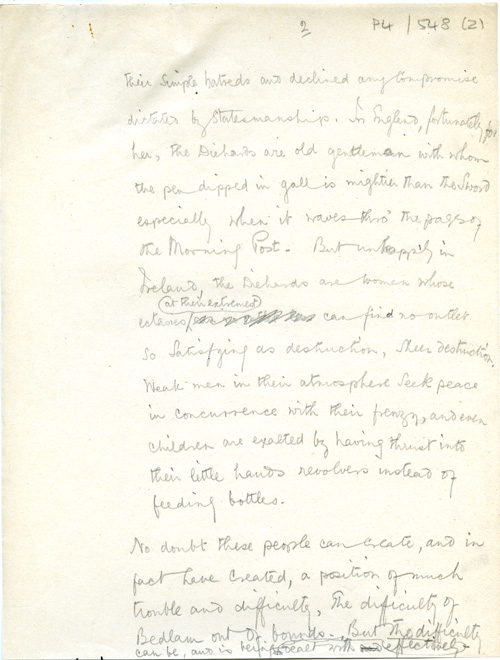 2 P4/548 (2)
their simple hatreds and declined any compromise
dictated by Statesmanship. In England, fortunately for
her, the Diehards are old gentlemen with whom
the pen dipped in gall is mightier than the Sword
especially when it waves thro' the pages of
the Morning Post. But unhappily in
Ireland, the Diehards are women whose
at their extremest
ectasies can find no outlet
so satisfying as destruction, sheer destruction.
Weak men in their atmosphere seek peace
in concurrence with their frenzy, and even
children are exalted by having thrust into
their little hands revolvers instead of
feeding bottles.
No doubt these people can create, and in
fact have created, a position of much
trouble and difficulty, The difficulty of
Bedlam out of bounds. But the difficulty
can be, and is being dealt with effectively.